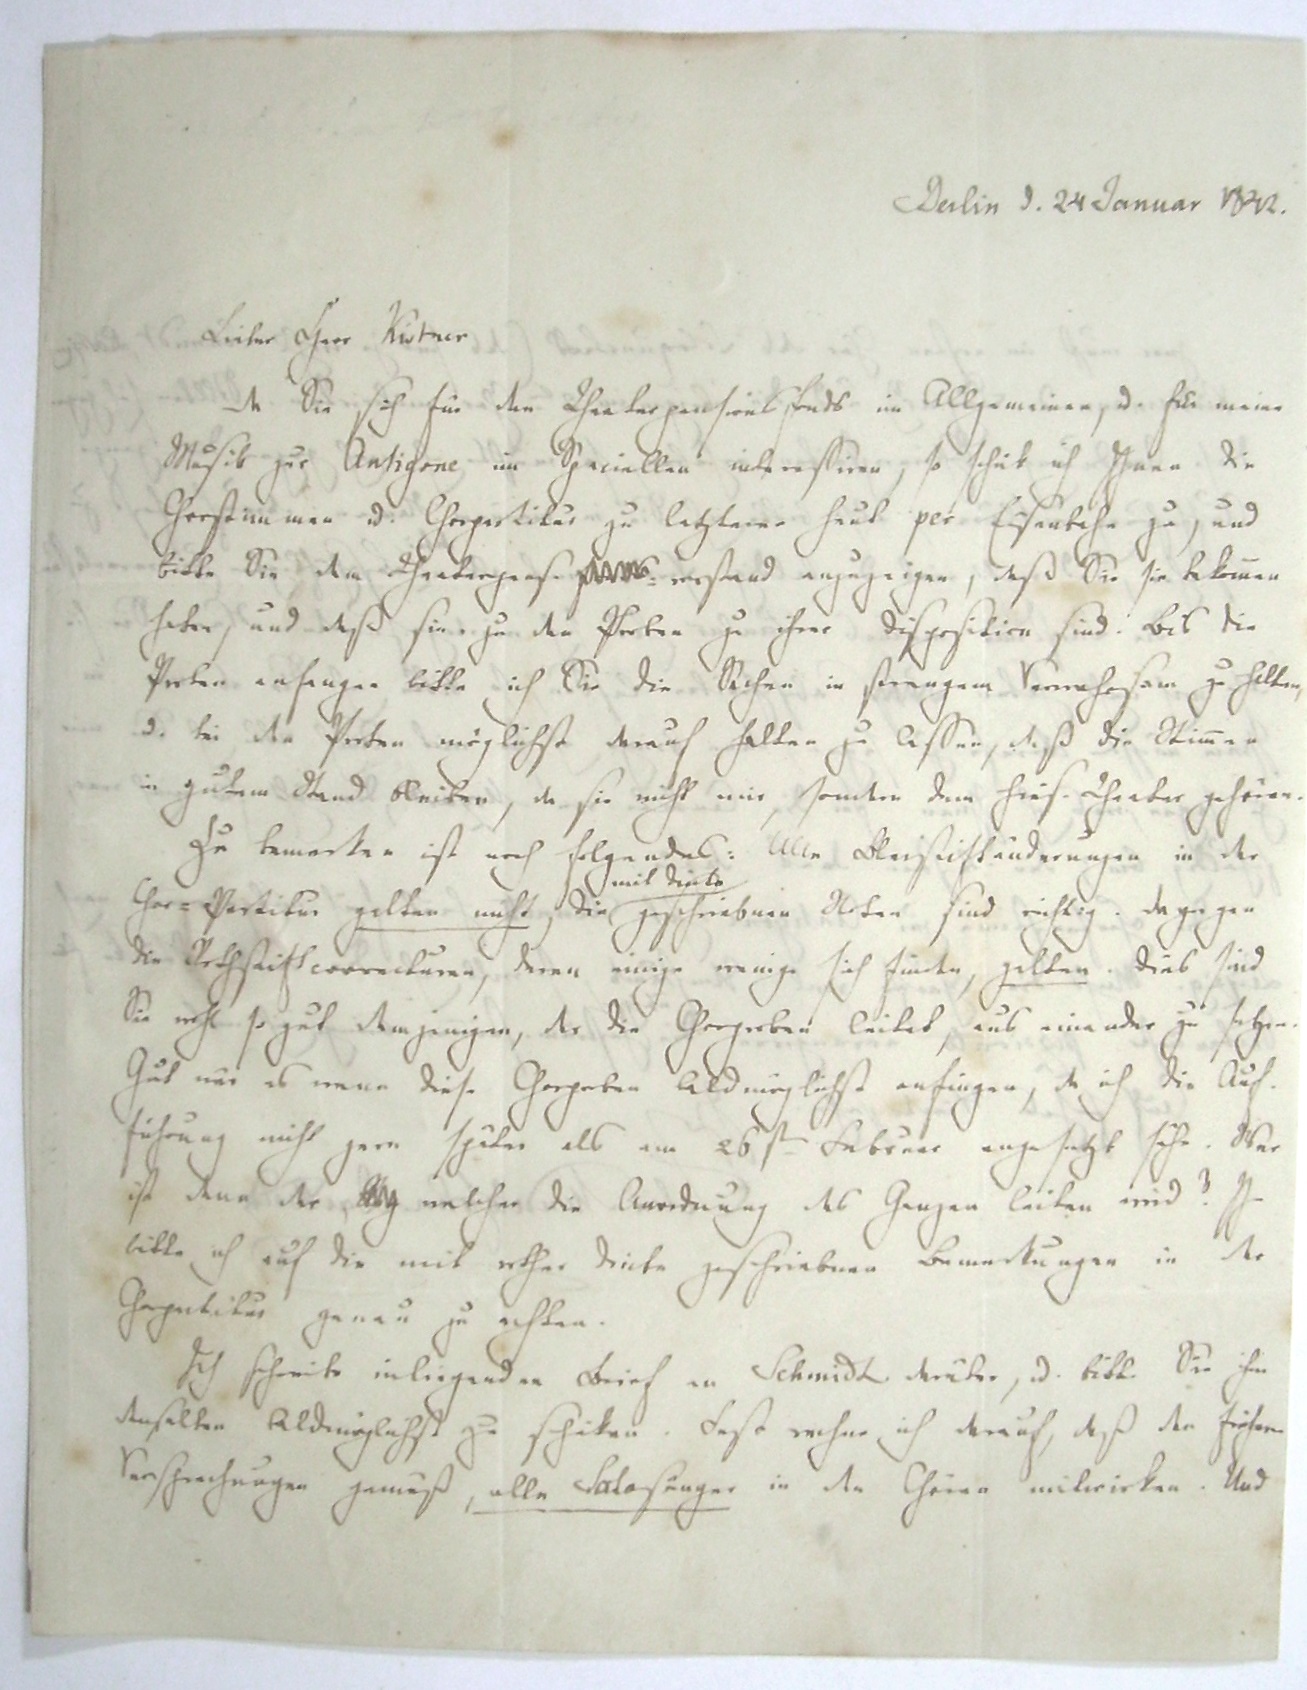 Berlin d. 24 Januar 1842.
Lieber Herr Kistner
Da Sie sich für den Theaterpensionsfonds im Allgemeinen, u. für meine
Musik zur Antigone im Speciellen interessiren, so schick ich Ihnen die
Chorstimmen u. Chorpartitur zu letzterer heut per Eisenbahn zu, und
bitte Sie dem Theaterpens. vorstand anzuzeigen, daß Sie sie bekommen
haben, und daß sie zu den Proben zu ihrer Disposition sind. Bis die
Proben anfangen bitte ich Sie die Sachen in strengem Verwahrsam zu halten,
u. bei den Proben möglichst darauf halten zu lassen, daß die Stimmen
in gutem Stand bleiben, da sie nicht mir, sondern dem hies. Theater gehören.
Zu bemerken ist noch folgendes: Alle Bleistiftänderungen in der
mit Dinte
Chor-Partitur gelten nicht, die geschriebnen Noten sind richtig. Dagegen
die Rothstiftcorrecturen, deren einige wenige sich finden, gelten. Dies sind
Sie wohl so gut demjenigen, der die Chorproben leitet, aus einander zu setzen.
Gut wär es wenn diese Chorproben baldmöglichst anfingen, da ich die Auf-
führung nicht gern später als am 26st Februar angesetzt sähe. Wer
ist denn der, welcher die Anordnung des Ganzen leiten wird? Ihn
bitte ich auf die mit rother Dinte geschriebnen Bemerkungen in der
Chorpartitur genau zu achten.
Ich schreibe inliegenden Brief an Schmidt darüber, u. bitte Sie ihm
denselben baldmöglichst zu schicken. Fest rechne ich darauf, daß den frühern
Versprechungen gemäß, alle Solosänger in den Chören mitwirken. Und